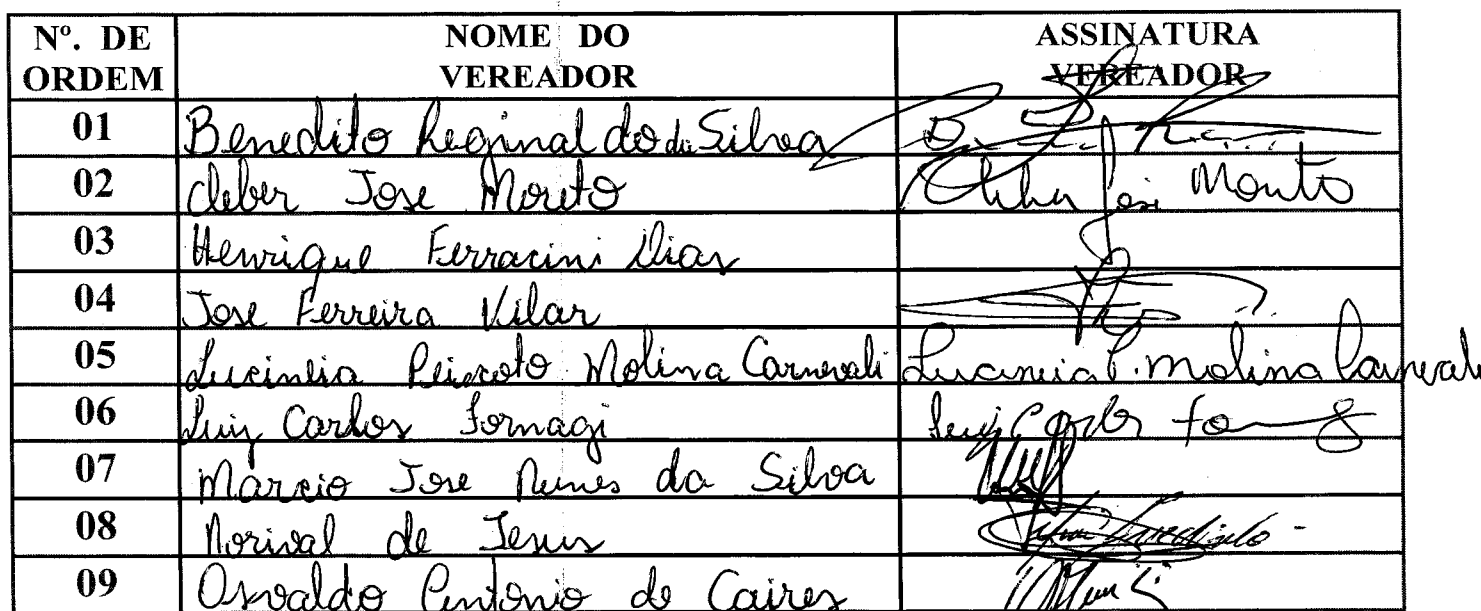 Nº. DE ORDEM NOME DO VEREADOR ASSINATURA VEREADOR
01 Benedito Reginaldo da Silva
02 Cleber Jose Moreto Cleber José Moreto
03 Henrique Ferracini Dias
04 Jose Ferreira Vilar
05 Lucineia Peixoto Molina Carnevali Lucineia P. Molina Carnevali
06 Luiz Carlos Fornagi Luiz Carlos
07 Marcio Jose Nunes da Silva
08 Norival de Jesus
09 Osvaldo Antonio de Caires